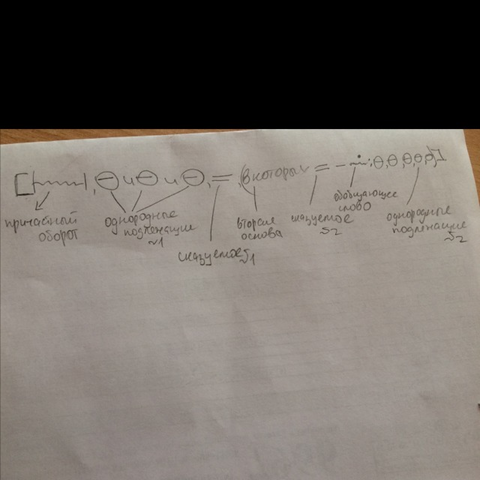 [|~~~|, ⊖ и ⊖ и ⊖, = , (в которых = – ∸ : ⊖, ⊖, ⊖, ⊖, ⊖)]
причастный
оборот
однородные
подлежащие
~1
сказуемое
~1
вторая
основа
сказуемое
~2
обобщающее
слово
однородные
подлежащие
~2